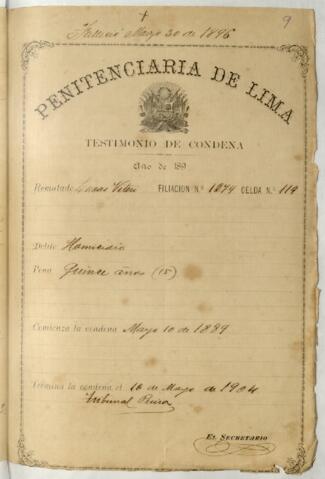 Falleció Mayo 30 de 1896
9
PENITENCIARIA DE LIMA
TESTIMONIO DE CONDENA
Año de 189
Rematado Lucas FILIACION N.º 1074 CELDA N.º 119
Delito Homicidio
Pena Quince años (15)
Comienza la condena Mayo 10 de 1889
Termina la condena el 10 de Mayo de 1904
Tribunal Piura
EL SECRETARIO